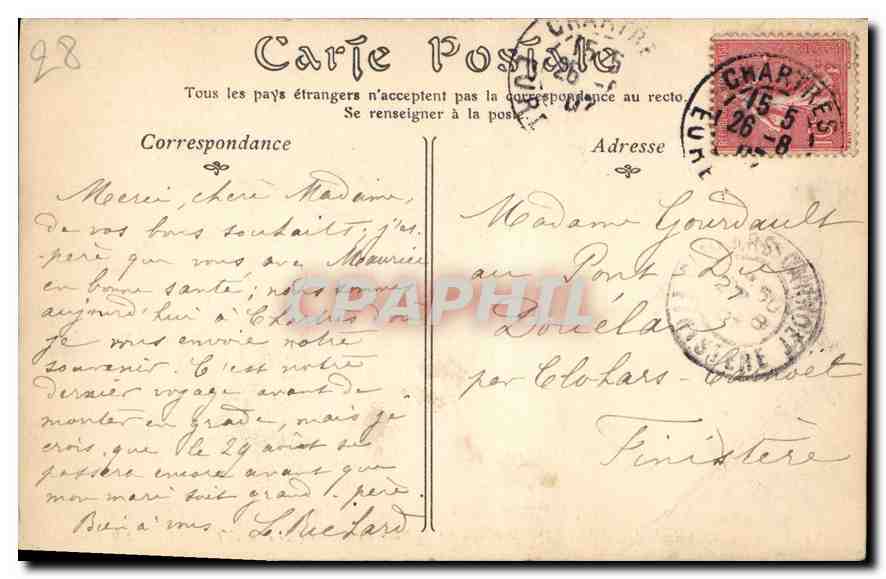 28
Carte Postale
Tous les pays étrangers n'acceptent pas la correspondance au recto.
Se renseigner à la poste
Correspondance
Merci, chère Madame,
de vos bons souhaits; j'es-
père que vous avez Maurice
en bonne santé; nous sommes
aujourd'hui à Chartres d'où
je vous envoie notre
souvenir. C'est notre
dernier voyage avant de
monter en grade, mais je
crois que le 29 août se
passera encore avant que
mon mari soit grand-père.
Bien à vous. L. Richard
Adresse
Madame Gourdault
au Pont Du
Douélan
par Clohars-Carnoët
Finistère
CHARTRES
15 5
26 -8
07
EURE
CHARTRES
15 5
26 -8
EURE
CLOHARS-CARNOET
27
8
FINISTERE
CPAPHIL